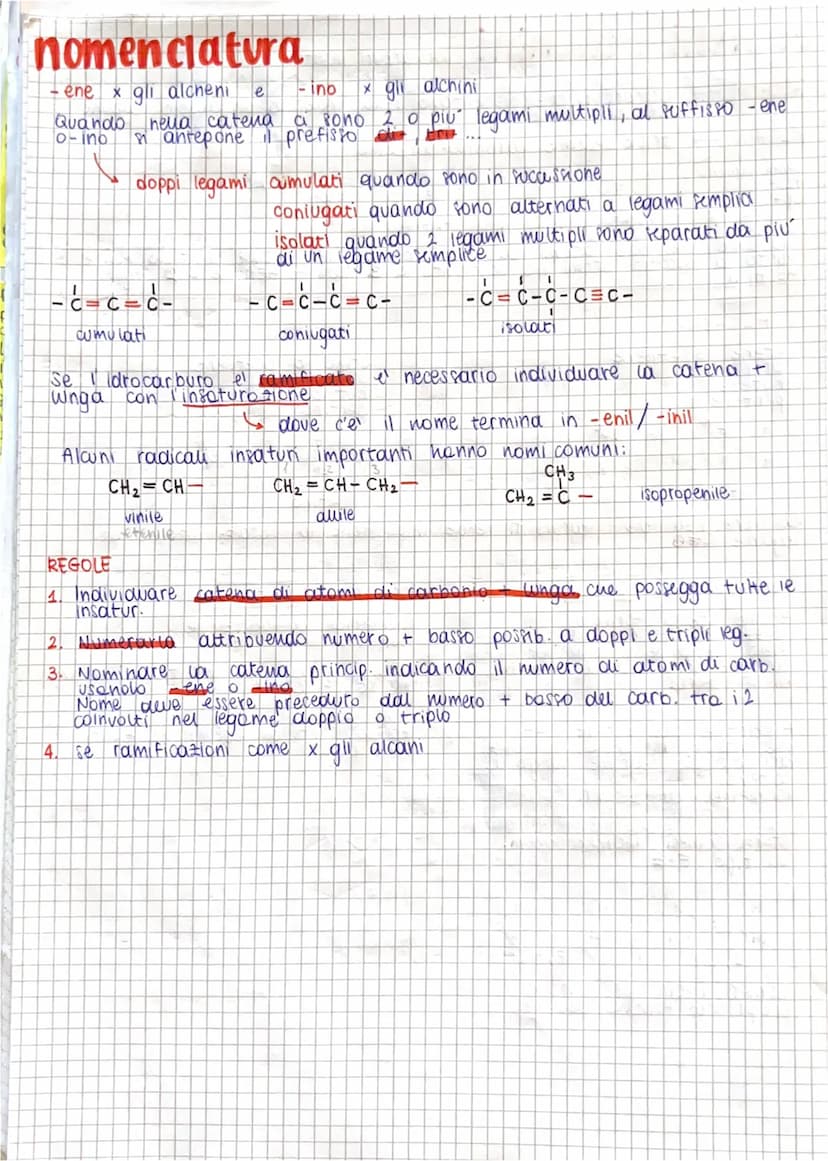 nomenclatura
-ene x gli alcheni e -ino x gli alchini
Quando nella catena ci sono 2 o più legami multipli, al suffisso -ene
o -ino si antepone il prefisso di, tri ...
doppi legami cumulati quando sono in successione
coniugati quando sono alternati a legami semplici
isolati quando 2 legami multipli sono separati da più
di un legame semplice
-C=C=C- -C=C-C=C- -C=C-C-C≡C-
cumulati coniugati isolati
Se l'idrocarburo e' ramificato e' necessario individuare la catena +
lunga con l'insaturazione
dove c'e' il nome termina in -enil/-inil
Alcuni radicali insaturi importanti hanno nomi comuni:
CH3
CH2=CH- CH2=CH-CH2- CH2=C- isopropenile
vinile allile
etenile
REGOLE
1. Individuare catena di atomi di carbonio + lunga che possegga tutte le
insatur.
2. Numerarla attribuendo numero + basso possib. a doppi e tripli leg.
3. Nominare la catena princip. indicando il numero di atomi di carb.
usanolo -ene o -ino
Nome deve essere preceduto dal numero + basso del carb. tra i 2
coinvolti nel legame doppio o triplo
4. se ramificazioni come x gli alcani